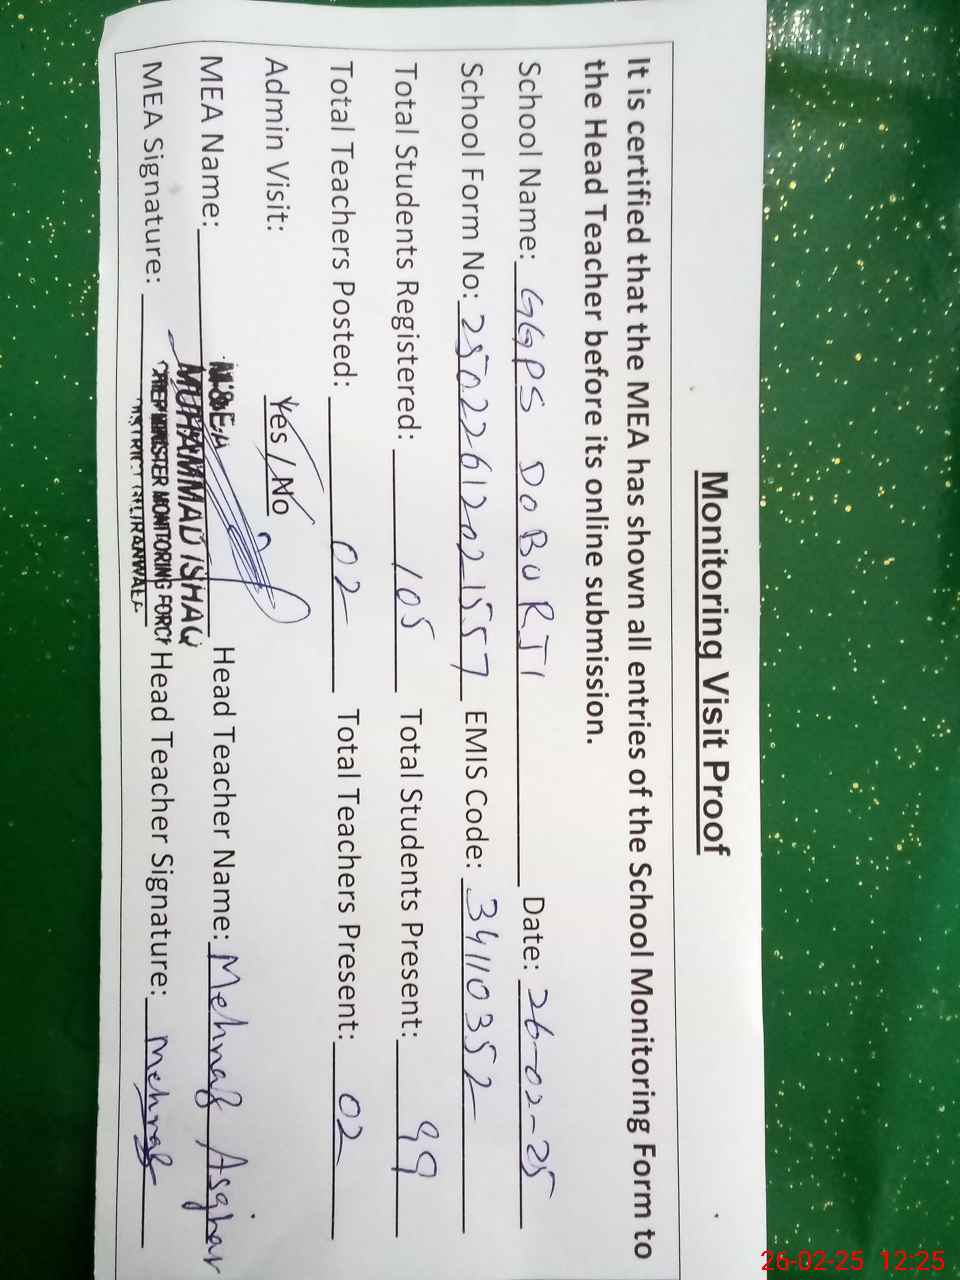 Monitoring Visit Proof
It is certified that the MEA has shown all entries of the School Monitoring Form to
the Head Teacher before its online submission.
School Name: GGPS DOBURJI Date: 26-02-25
School Form No: 25022612021557 EMIS Code: 34110352
Total Students Registered: 105 Total Students Present: 99
Total Teachers Posted: 02 Total Teachers Present: 02
Admin Visit: Yes / No
MEA Name: MUHAMMAD ISHAQ Head Teacher Name: Mehnaz Asghar
MEA Signature: MONITORING FORCE Head Teacher Signature: Mehnaz
DISTRICT GUJRANWALA
26-02-25 12:25